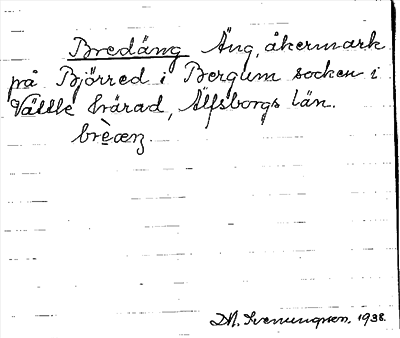 Bredäng Äng, åkermark
på Björred i Bergum socken i
Vättle härad, Älfsborgs län.
brèæŋ.
D.N. Svenungsson. 1938.